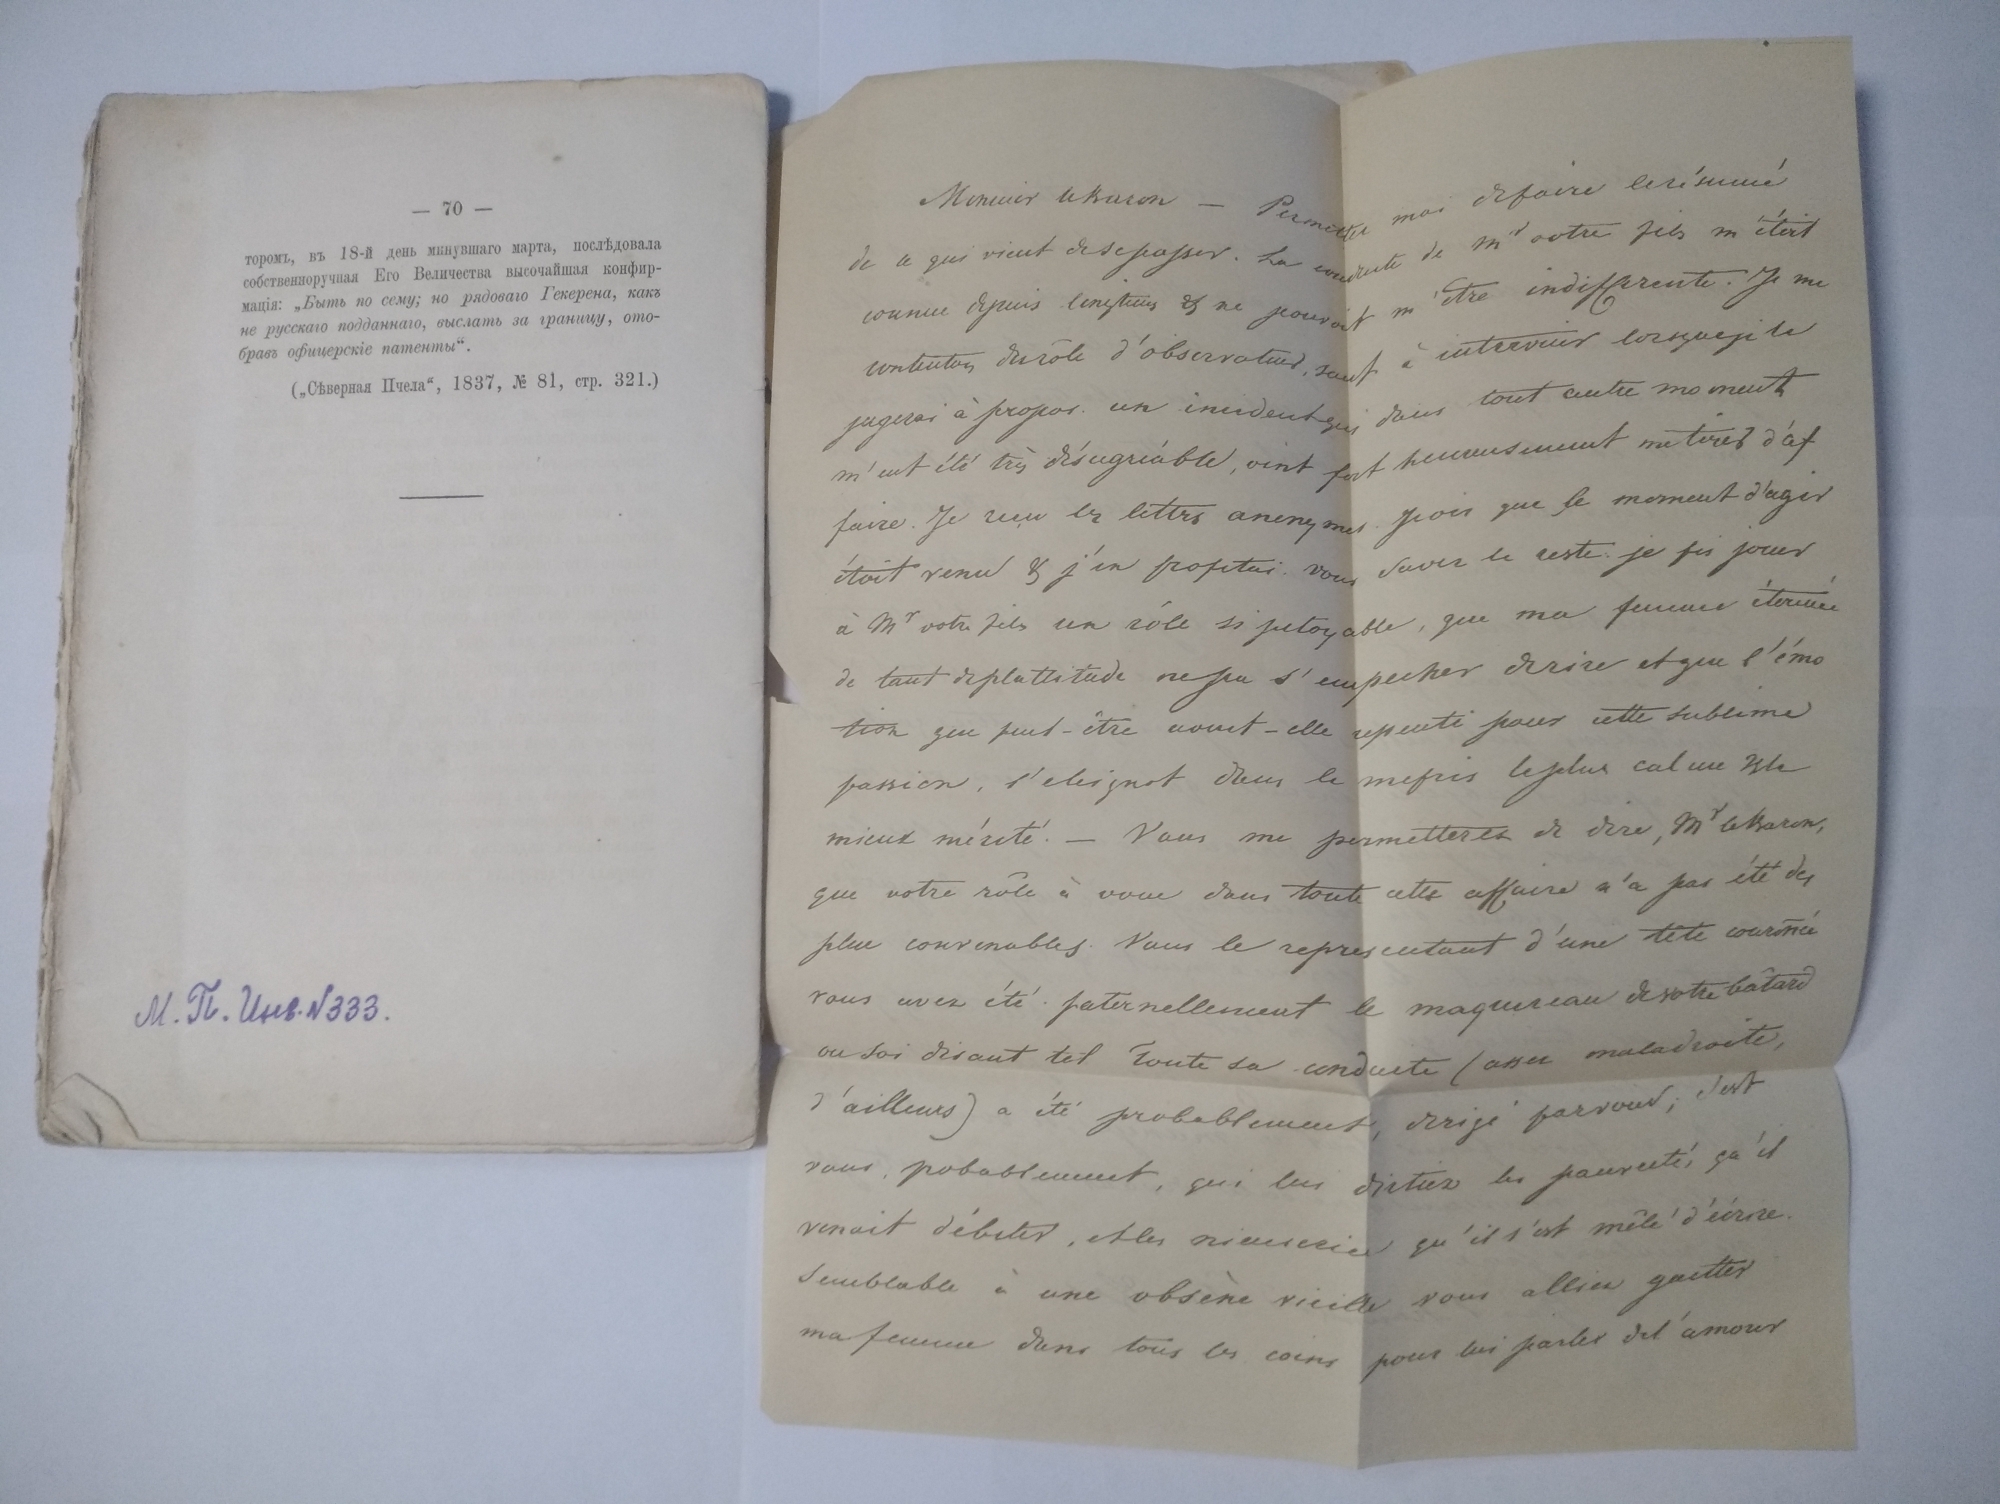 — 70 —
торомъ, въ 18-й день минувшаго марта, послѣдовала
собственноручная Его Величества высочайшая конфир-
мація: „Быть по сему; но рядоваго Гекерена, какъ
не русскаго подданнаго, выслать за границу, ото-
бравъ офицерскіе патенты“.
(„Сѣверная Пчела“, 1837, № 81, стр. 321.)
М. П. Инв. N 333.
Monsieur le Baron — Permettez moi de faire le résumé
de ce qui vient de se passer. La conduite de Mr votre fils m'étoit
connue depuis longtems & ne pouvoit m'être indifférente. Je me
contentois du rôle d'observateur, sauf à intervenir lorsque je le
jugerai à propos. un incident qui dans tout autre moment
m'eut été très désagréable, vint fort heureusement me tirer d'af
faire. Je reçu les lettres anonymes. je vois que le moment d'agir
étoit venu & j'en profitai. vous savez le reste: je fis jouer
à Mr votre fils un rôle si pitoyable, que ma femme étonnée
de tant de plattitude ne pu s'empecher de rire et que l'émo
tion que peut-être avait-elle ressenti pour cette sublime
passion, s'éteignit dans le mepris le plus calme & le
mieux mérité. — Vous me permetterez de dire, Mr le Baron,
que votre rôle à vous dans toute cette affaire n'a pas été des
plus convenables. Vous le représentant d'une tête couronné
vous avez été paternellement le maquereau de votre bâtard
ou soi disant tel Toute sa conduite (assez maladroite,
d'ailleurs) a été probablement, dirigé par vous; c'est
vous, probablement, qui lui dictiez les pauvretés qu'il
venait débiter, et les niaiseries qu'il s'est mêlé d'écrire.
Semblable à une obsène vieille vous alliez guetter
ma femme dans tous les coins pour lui parler de l'amour